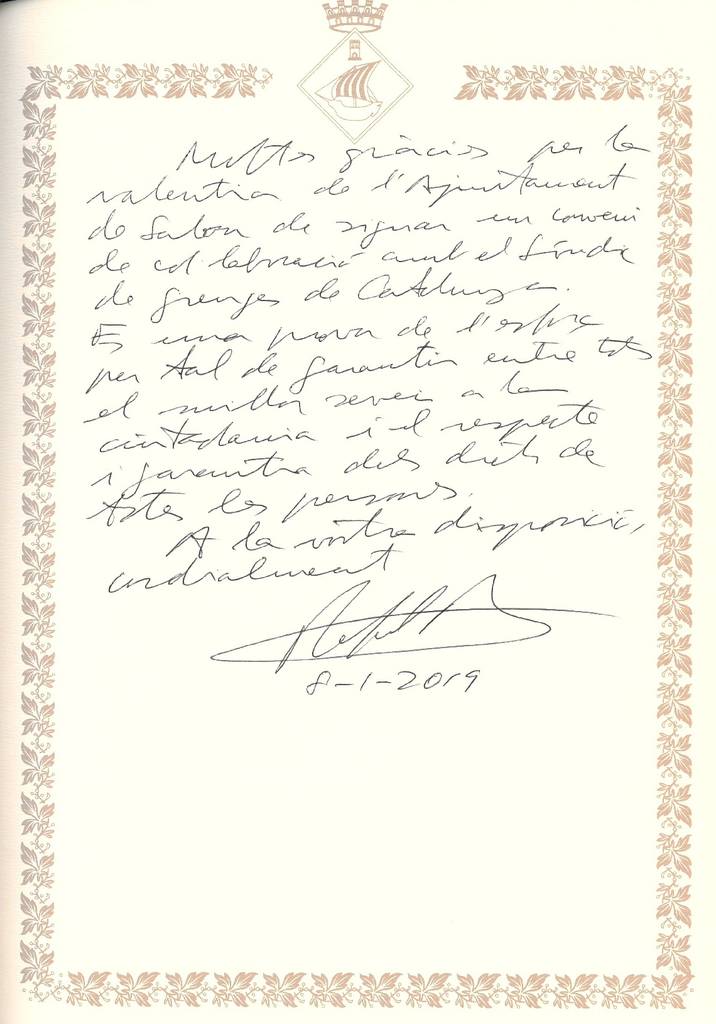 Moltes gràcies per la
valentia de l'Ajuntament
de Salou de signar un conveni
de col·laboració amb el Síndic
de greuges de Catalunya.
Es una prova de l'esforç
per tal de garantir entre tots
el millor servei a la
ciutadania i el respecte
i garantia dels drets de
totes les persones.
A la vostra disposició,
cordialment
8-1-2019